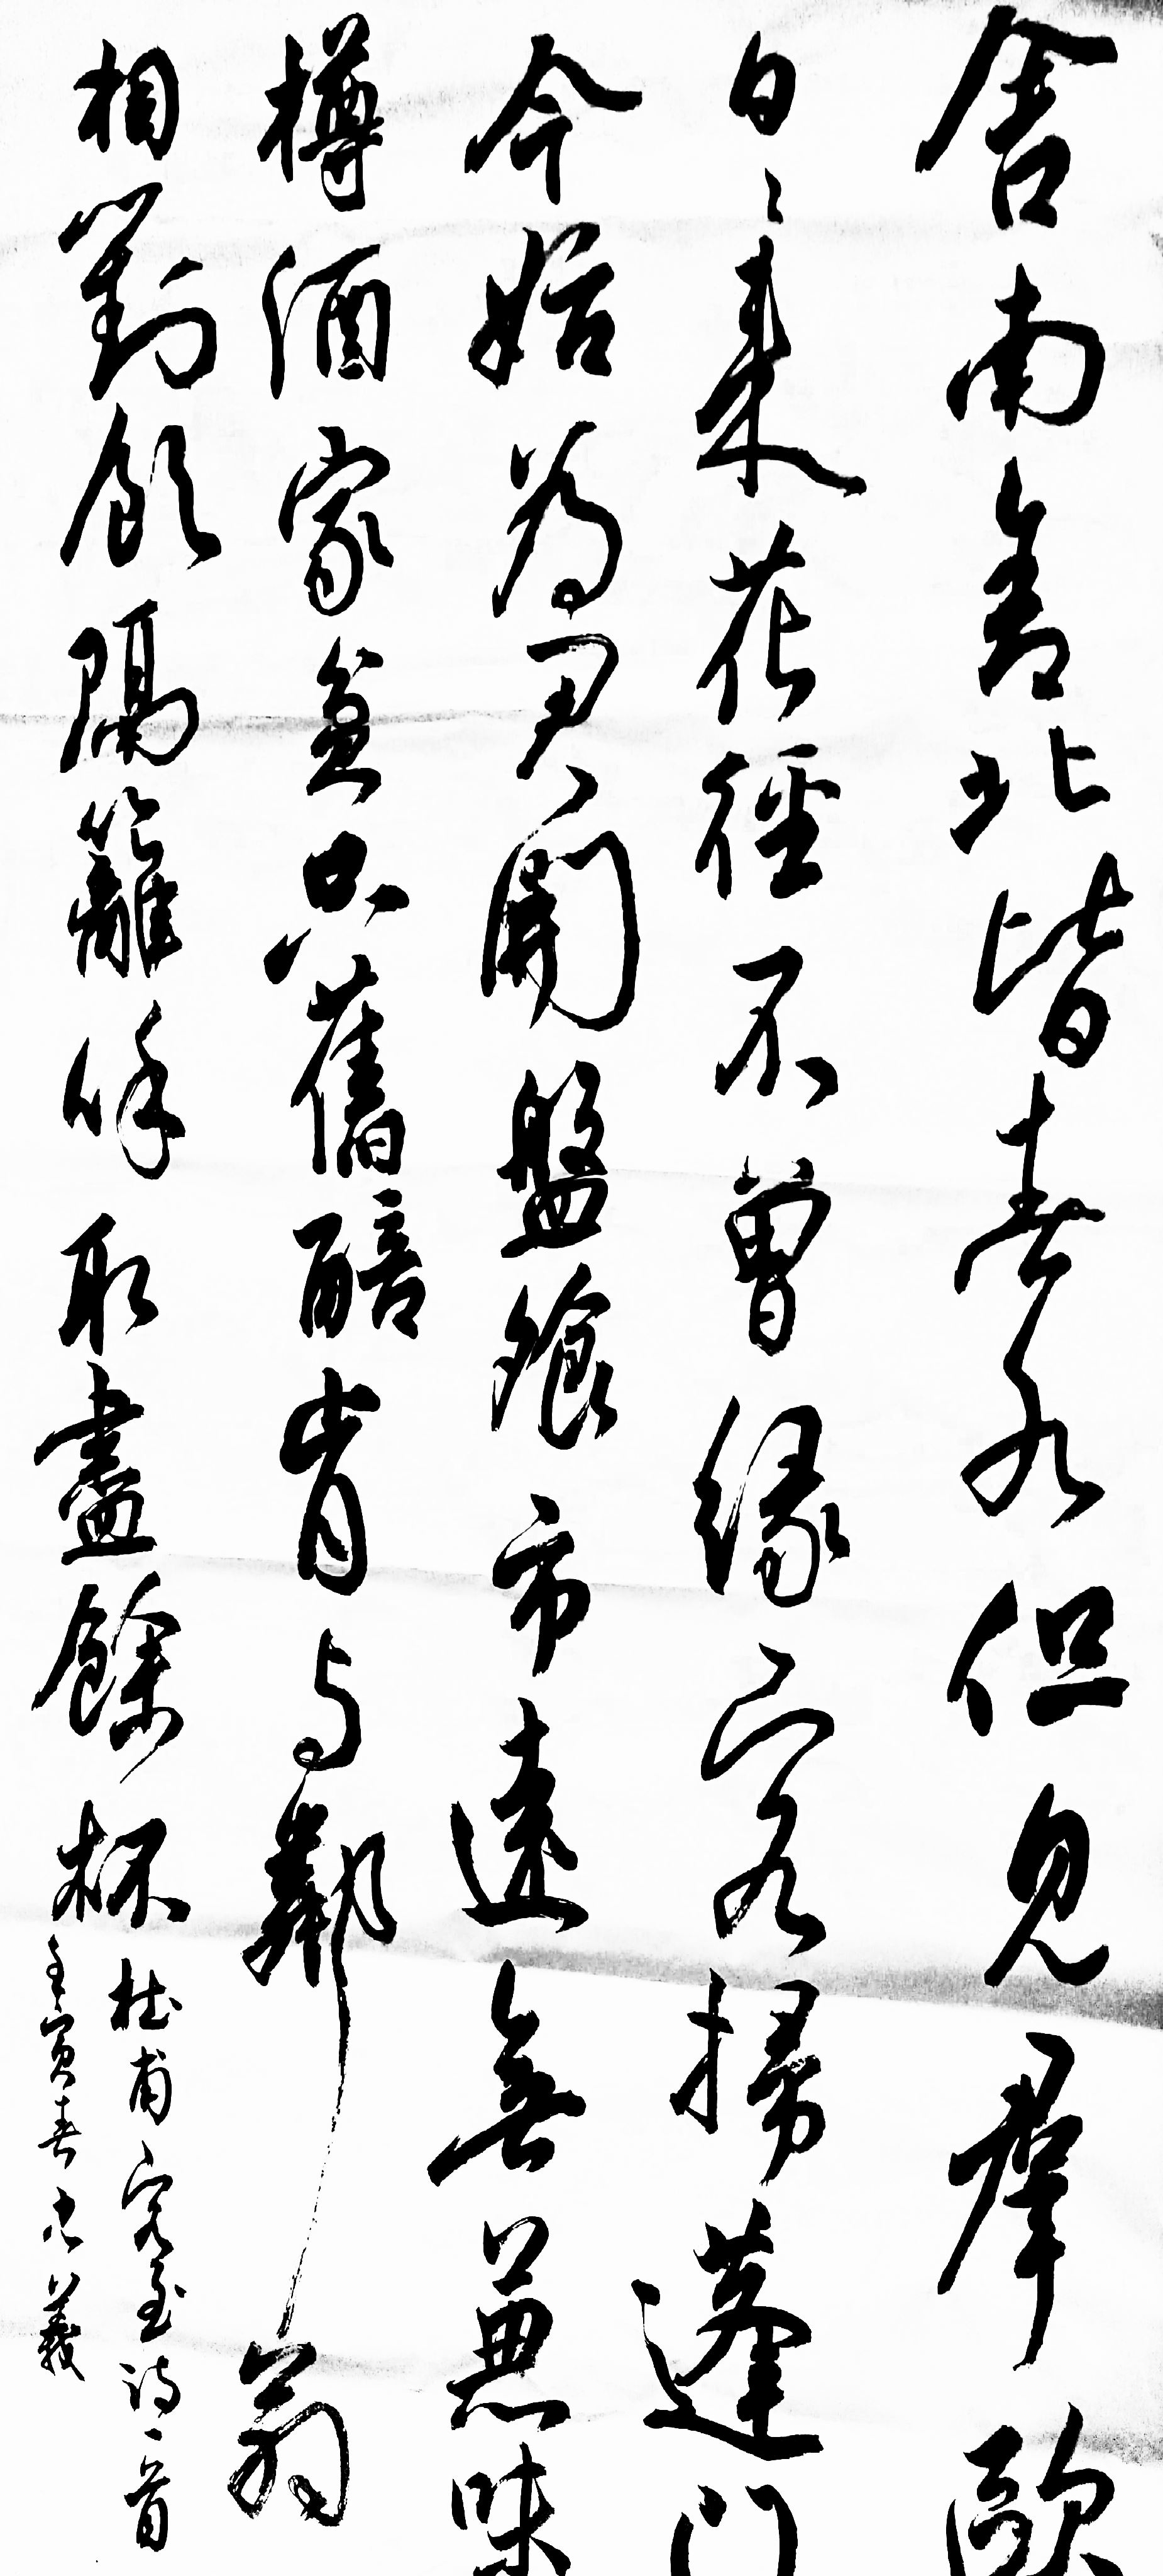 舍南舍北皆春水但見群歐
日々來花徑不曾緣客掃蓬門
今始為君開盤飧市遠無兼味
樽酒家貧只舊醅肯与鄰翁
相對飲隔籬呼取盡餘杯
杜甫客至詩一首
壬寅春義